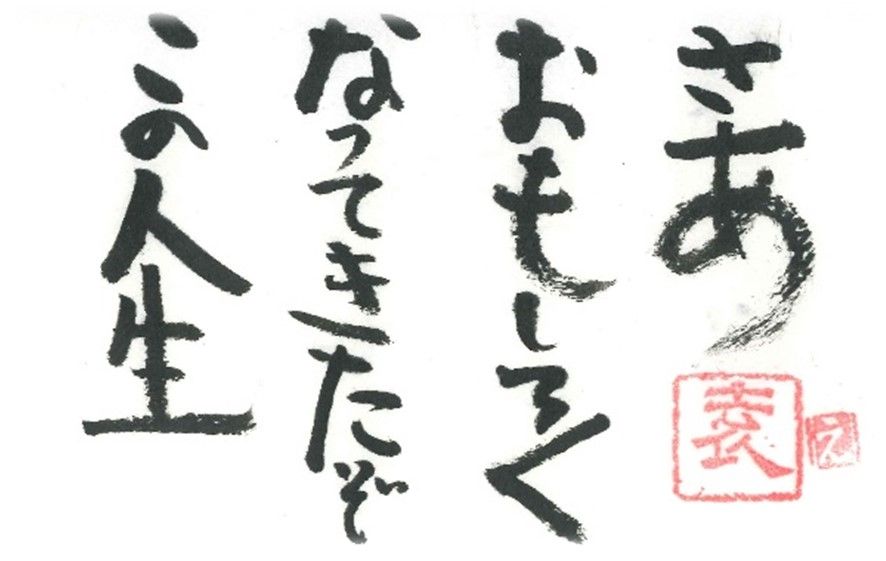 さあ
おもしろく
なってきたぞ
この人生
え